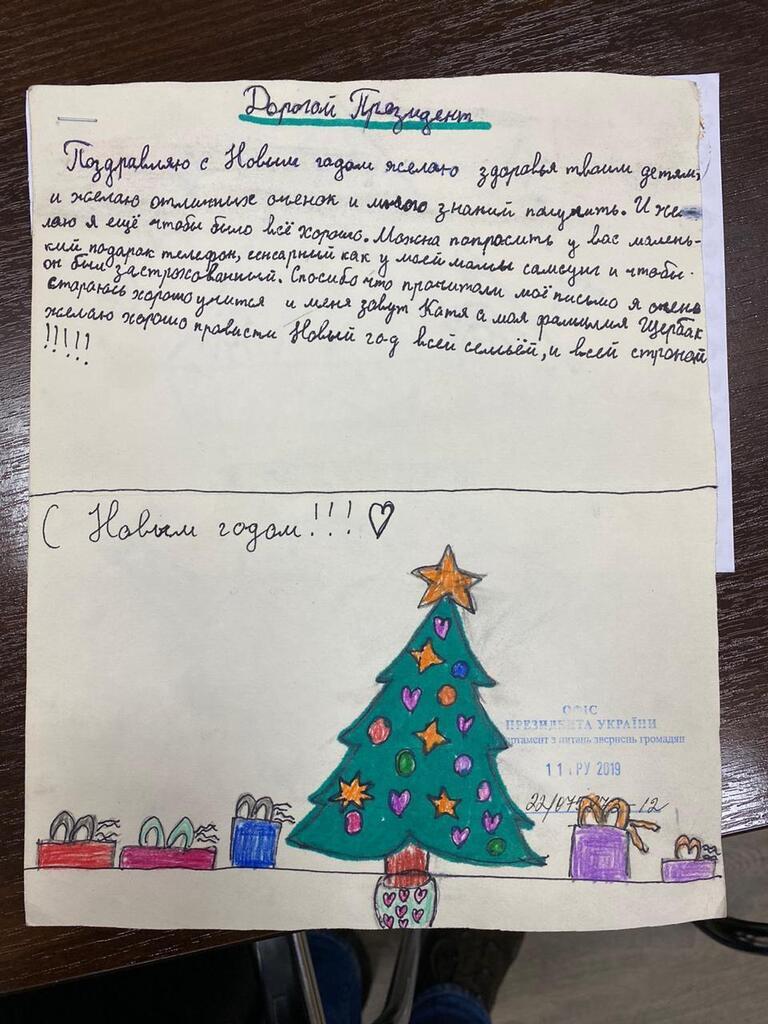 Дорогой Президент
Поздравляю с Новым годом желаю здоровья твоим детям,
и желаю отличных оченок и много знаний палучить. И же-
лаю я ещё чтобы было всё хорошо. Можна попрасить у вас малень-
кий подарак телефон, сенсарный как у моей мамы самсунг и чтобы
он был застрохованный. Спосибо что прочитали моё письмо я очень
стараюсь хорошо учится и меня завут Катя а моя фамилия Щербак
желаю хорошо прависти Новый год всей семьёй, и всей страной
!!!!!
С Новым годом!!! ♡
ОФІС
ПРЕЗИДЕНТА УКРАЇНИ
артамент з питань звернень громадян
11 ГРУ 2019